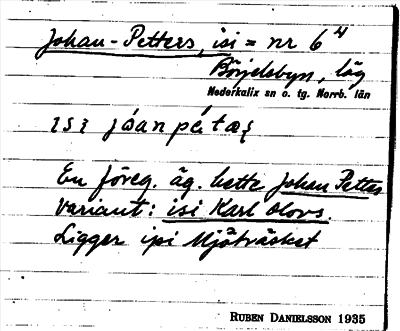 Johan-Petters, isi = nr 6⁴
Börjelsbyn, läg
Nederkalix sn o. tg. Norrb. län
ısı jóanpétæʂ
En föreg. äg. hette Johan Petter
Variant: isi Karl Olovs.
Ligger ipi Mjöträsket
RUBEN DANIELSSON 1935